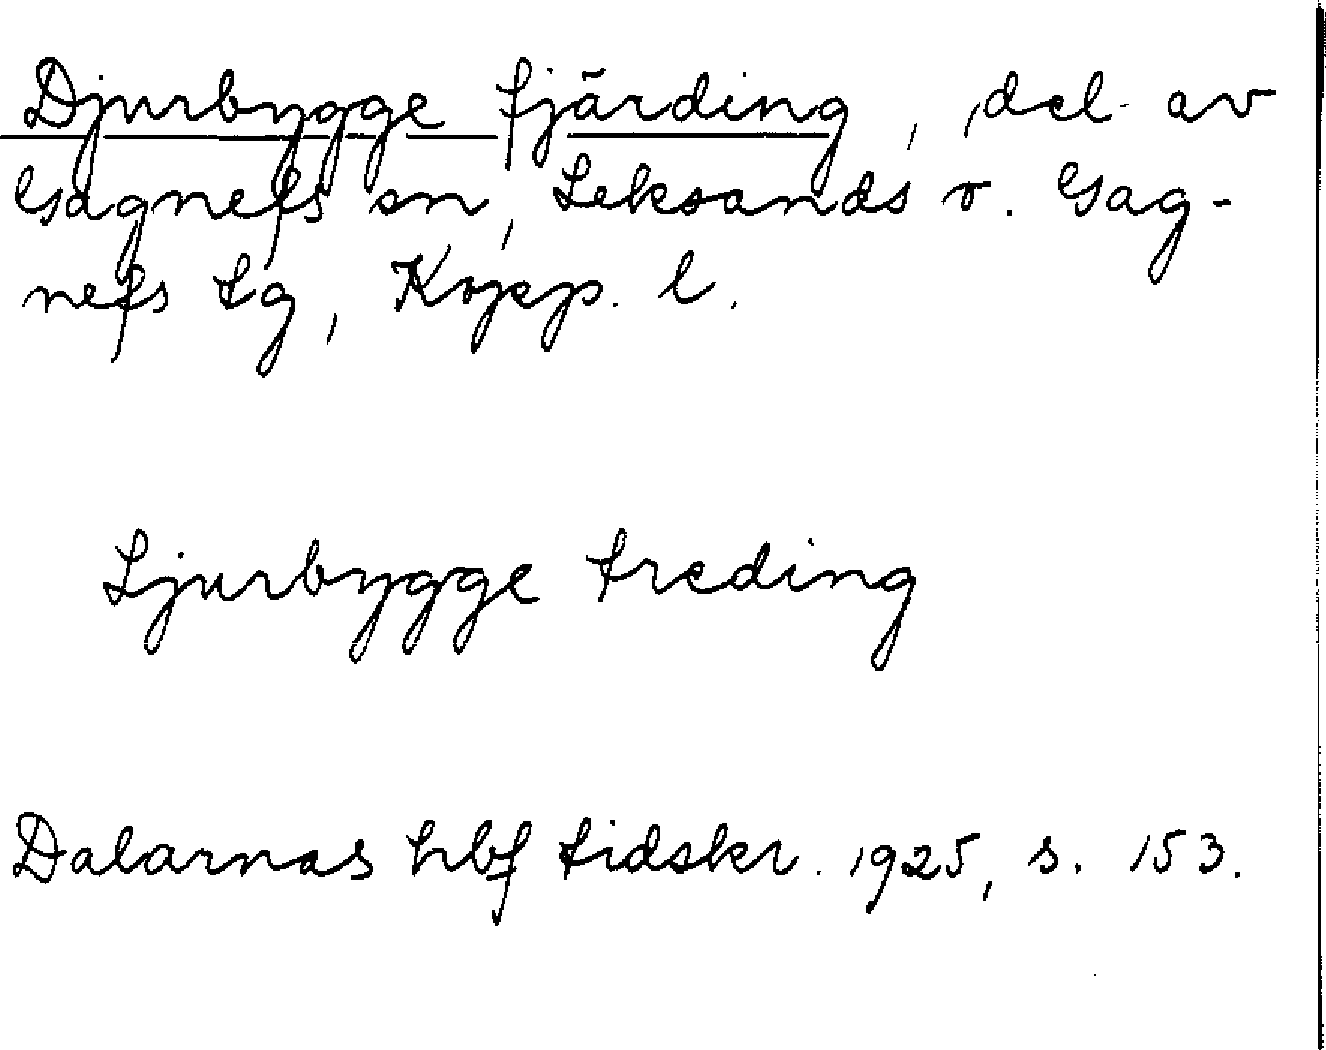 Djurbygge fjärding, del av
Gagnefs sn, Leksands o. Gag-
nefs tg, Kopp. l.
Ljurbygge treding
Dalarnas hbf tidskr. 1925, s. 153.